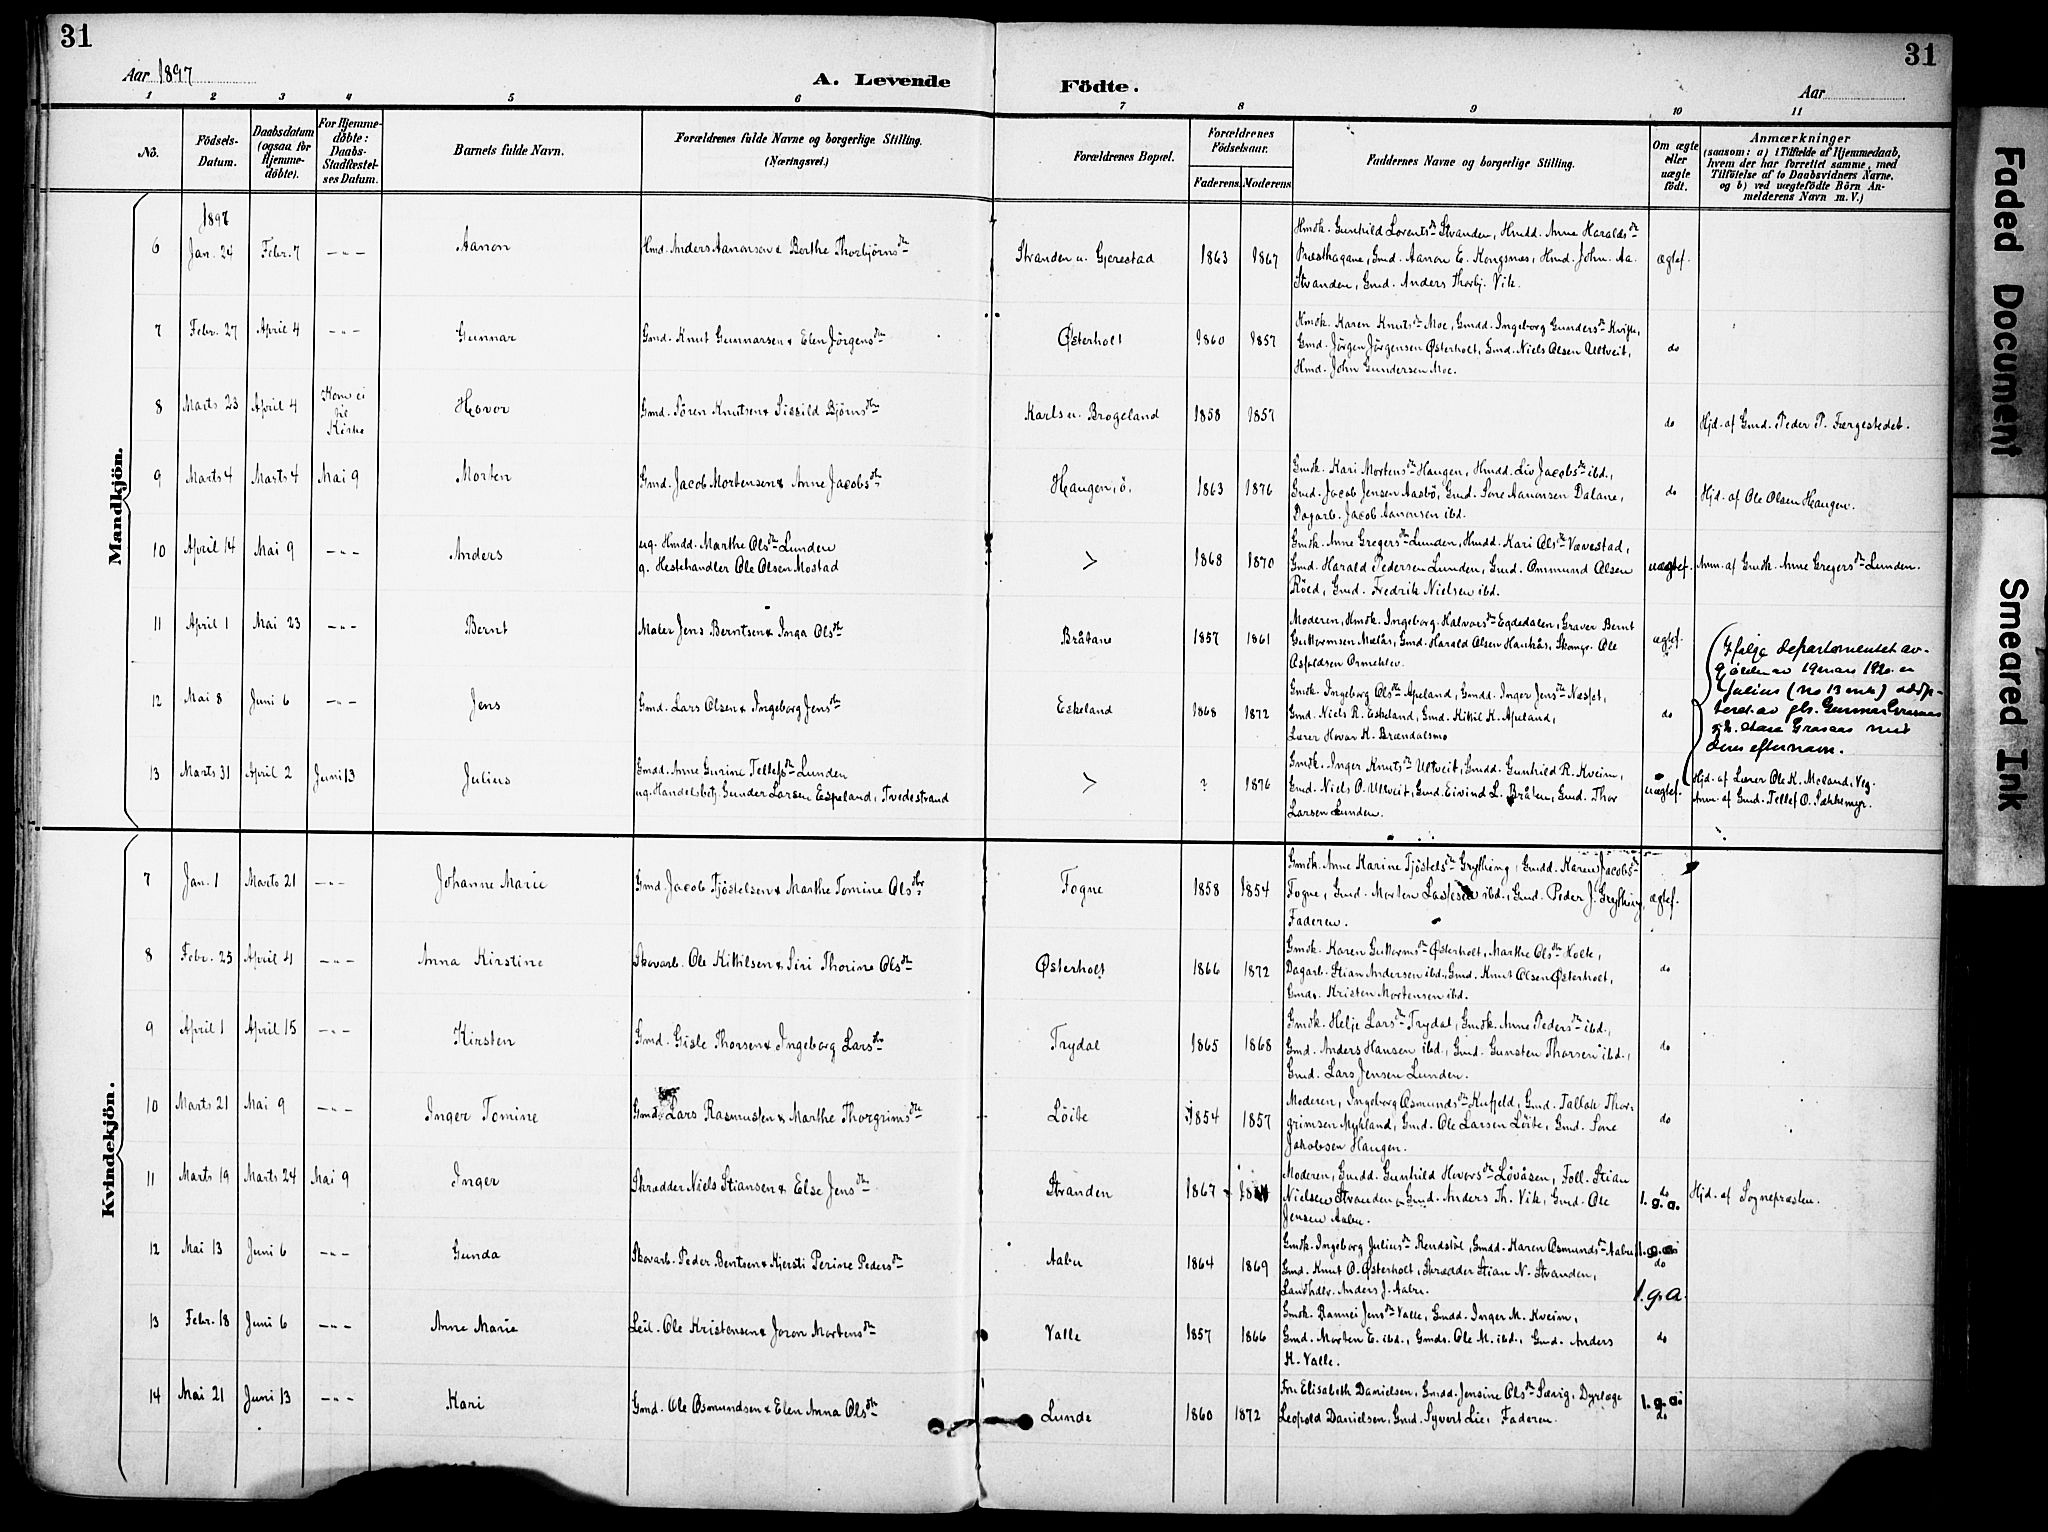 31
31
Aar 1897
A. Levende
Födte.
Aar
1 2 3 4 5 6 7 8 9 10 11
Nō.
Födsels-
Datum.
Daabsdatum
(ogsaa for
Hjemme-
döbte).
For Hjemme-
döbte:
Daabs-
Stadfæstel-
ses Datum.
Barnets fulde Navn.
Forældrenes fulde Navne og borgerlige Stilling.
(Næringsvei.)
Forældrenes Bopæl.
Forældrenes
Födselsaar.
Faderens. Moderens.
Faddernes Navne og borgerlige Stilling.
Om ægte
eller
uægte
födt.
Anmærkninger
(saasom: a) i Tilfælde af Hjemmedaab,
hvem der har forrettet samme, med
Tilföielse af to Daabsvidners Navne.
og b) ved uægtefödte Börn An-
melderens Navn m. V.)
Mandkjön.
1897
6 Jan. 24 Febr. 7 -"- Aanon Hmd. Anders Aanonsen & Berthe Thorbjørnsdtr Stranden u. Gjerestad 1863 1867
Hmdk. Gunhild Lorentsdtr Stranden, Hmdd. Anne Haraldsdtr
Præsthagane, Gmd. Aanon E. Kongsnæs, Hmd. John Aa.
Stranden, Gmd. Anders Thorbj. Vik.
ægtef.
7 Febr. 27 April 4 -"- Gunnar Gmd. Knut Gunnarsen & Elen Jörgensdtr Østerholt 1860 1857
Hmdk. Karen Knutsdtr Moe, Gmdd. Ingeborg Gundersdtr Kviste,
Gmd. Jörgen Jörgensen Østerholt, Gmd. Niels Olsen Ulltveit,
Hmd. John Gundersen Moe.
do
8 Marts 23 April 4 Kom ei
til
Kirke
Hovor Gmd. Sören Knutsen & Sissild Bjørnsdtr Karls u. Brogeland 1858 1857 do Hjd. af Gmd. Peder P. Færgestedet.
9 Marts 4 Marts 4 Mai 9 Morten Gmd. Jacob Mortensen & Anne Jacobsdtr Haugen, ö. 1863 1876
Gmdk. Kari Mortensdtr Haugen, Hmdd. Liv Jacobsdtr ibd.,
Gmd. Jacob Jensen Aasbö, Gmd. Sone Aanonsen Dalane,
Dagarb. Jacob Aanonsen ibd.
do Hjd. af Ole Olsen Haugen.
10 April 14 Mai 9 -"- Anders ug. Hmdd. Marthe Olsdtr Lunden
g. Hestehandler Ole Olsen Mostad
> 1868 1870
Gmdk. Anne Gregersdtr Lunden, Hmdd. Kari Olsdtr Vævestad,
Gmd. Harald Pedersen Lunden, Gmd. Ommund Olsen
Röed, Gmd. Fredrik Nielsen ibd.
uægtef. Anm. af Gmdk. Anne Gregersdtr Lunden.
11 April 1 Mai 23 -"- Bernt Maler Jens Berntsen & Inga Olsdtr Bråtane 1857 1861
Moderen, Hmdk. Ingeborg Halvorsdtr Egdedalen, Graver Bernt
Guttormsen Melås, Gmd. Harald Olsen Haukås, Skomgr. Ole
Asfoldsen Ormeklev.
ægtef.
12 Mai 8 Juni 6 -"- Jens Gmd. Lars Olsen & Ingeborg Jensdtr Eskeland 1868 1872
Gmdk. Ingeborg Olsdtr Apeland, Gmdd. Inger Jensdtr Næset,
Gmd. Niels R. Eskeland, Gmd. Kittil K. Apeland,
Lærer Hovar K. Brændalsmo
do
Ifølge departementet av-
gjörelse av 19 mars 1920 er
Julius (no 13 m.k.) adop-
teret av gb. Gunnar Graaas
og h. Graaas med
deres efternavn.
13 Marts 31 April 2 Juni 13 Julius Gmdd. Anne Gurine Tellefsdtr Lunden
ug. Handelsbetj. Gunder Larsen Espeland, Tvedestrand
> ? 1876
Gmdk. Inger Knutsdtr Ultveit, Gmdd. Gunhild R. Kveim,
Gmd. Niels O. Ultveit, Gmd. Eivind L. Bråten, Gmd. Thor
Larsen Lunden.
uægtef.
Hjd. af Lærer Ole K. Moland, Veg.
Anm. af Gmd. Tellef O. Sækkemyr.
Kvindekjön.
7 Jan. 1 Marts 21 -"- Johanne Marie Gmd. Jacob Tjöstelsen & Marthe Tomine Olsdtr Fogne 1858 1854
Gmdk. Anne Karine Tjöstelsdtr Gryting, Gmdd. Karen Jacobsdtr
Fogne, Gmd. Morten ibd., Gmd. Peder J. Gryting,
Faderen.
ægtef.
8 Febr. 25 April 4 -"- Anna Kirstine Skovarb. Ole Kittilsen & Siri Thorine Olsdtr Østerholt 1866 1872
Gmdk. Karen Guttormsdtr Østerholt, Marthe Olsdtr Holte,
Dagarb. Stian Andersen ibd., Gmd. Knut Olsen Østerholt,
Gmds. Kristen Mortensen ibd.
do
9 April 1 April 15 -"- Kirsten Gmd. Gisle Thorsen & Ingeborg Larsdtr Trydal 1865 1868
Gmdk. Helje Larsdtr Trydal, Gmdk. Anne Pedersdtr ibd.,
Gmd. Anders Hansen ibd., Gmd. Gunsten Thorsen ibd.,
Gmd. Lars Jensen Lunden.
do
10 Marts 21 Mai 9 -"- Inger Tomine Gmd. Lars Rasmussen & Marthe Thorgrimsdtr Löite 1854 1857
Moderen, Ingeborg Osmundsdtr Kufjeld, Gmd. Tallak Thor-
grimsen Mykland, Gmd. Ole Larsen Löite, Gmd. Sone
Jakobsen Haugen.
do
11 Marts 19 Marts 24 Mai 9 Inger Skrædder Niels Stiansen & Else Jensdtr Stranden 1867
Moderen, Gmdd. Gunhild Hovorsdtr Lövåsen, Foll. Stian
Nielsen Stranden, Gmd. Anders Th. Vik, Gmd. Ole
Jensen Aabu.
do
1. g. a.
Hjd. af Sognepræsten.
12 Mai 13 Juni 6 -"- Gunda Skovarb. Peder Bentsen & Kjersti Perine Pedersdtr Aabu 1864 1869
Gmdk. Ingeborg Juliusdtr Rendstöl, Gmdd. Karen Osmundsdtr Aabu,
Gmd. Knut O. Østerholt, Skrædder Stian N. Stranden,
Landhdlr. Anders J. Aabu.
1. g. a.
do
1. g. a.
13 Febr. 18 Juni 6 -"- Anne Marie Leil. Ole Kristensen & Joron Mortensdtr Valle 1857 1866
Gmdk. Rannei Jensdtr Valle, Gmdd. Inger M. Kveim,
Gmd. Morten E. ibd., Gmds. Ole M. ibd., Gmd. Anders
K. Valle.
do
14 Mai 21 Juni 13 -"- Kari Gmd. Ole Osmundsen & Elen Anna Olsdtr Lunde 1860 1872
Fru Elisabeth Danielsen, Gmdd. Jensine Olsdtr Sævig, Dyrlæge
Leopold Danielsen, Gmd. Syvert Lie, Faderen.
1. g. a.
do
Faded Document
Smeared Ink